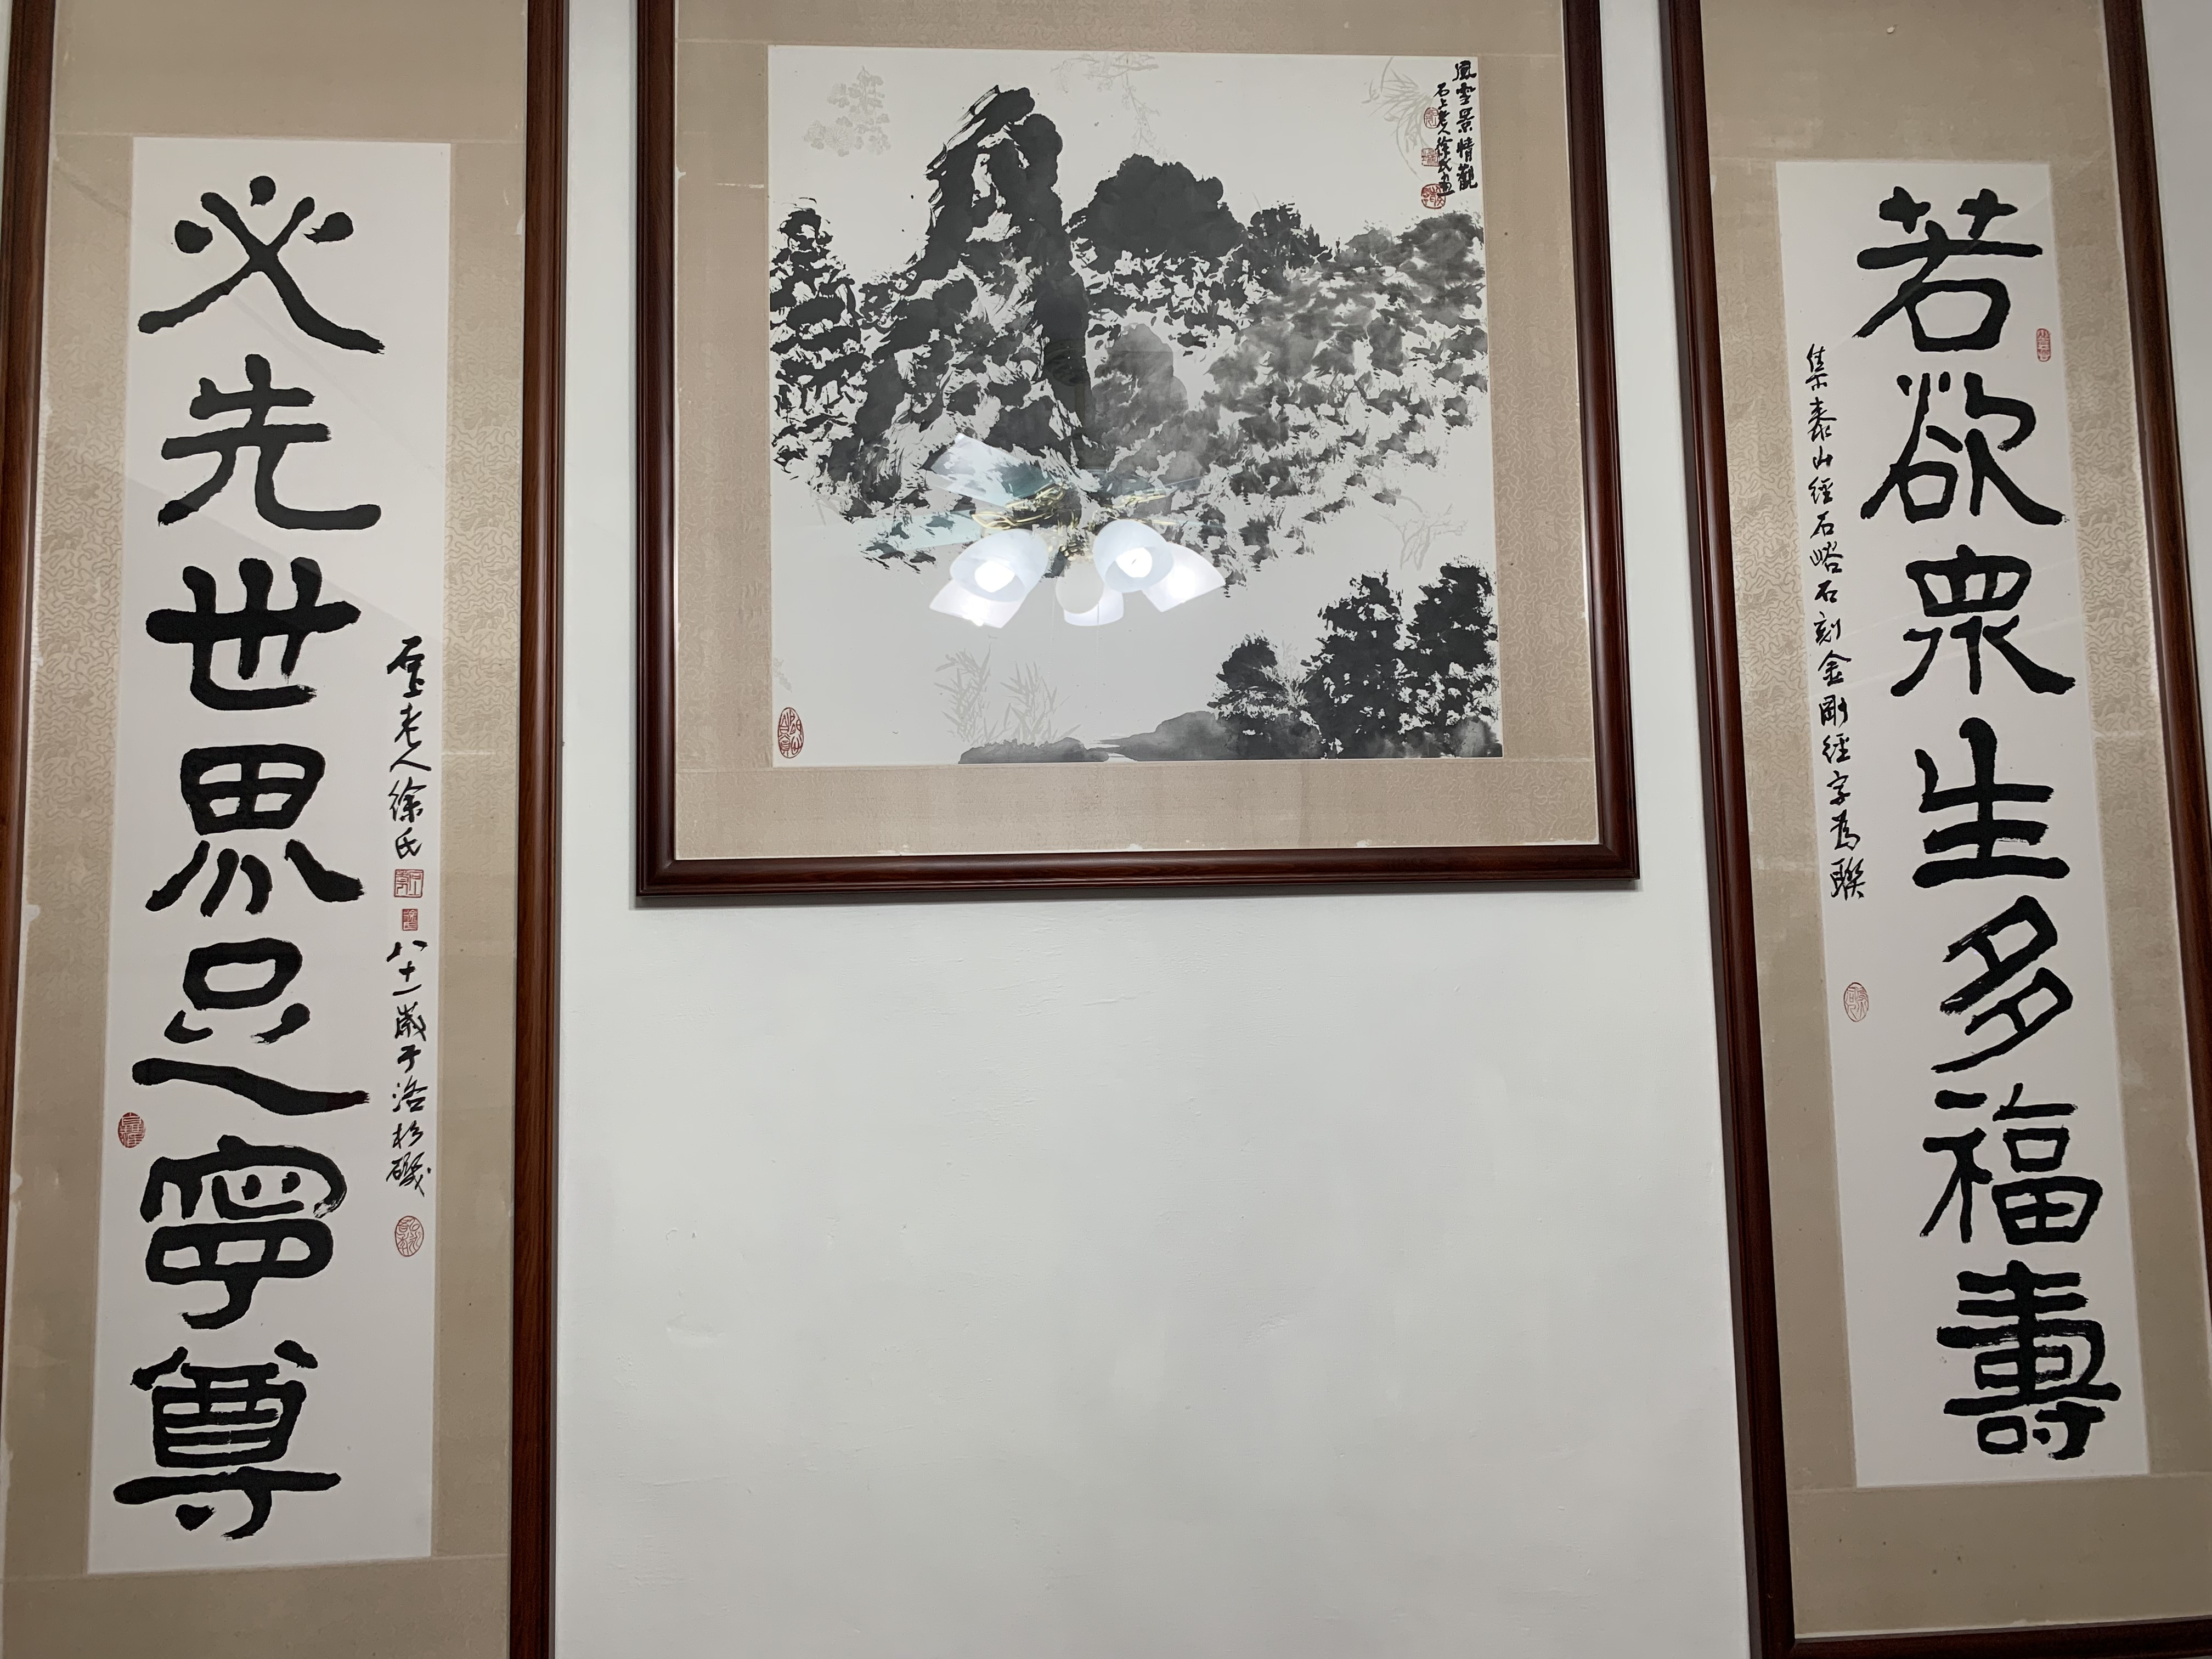 若欲眾生多福壽
集泰山經石峪石刻金剛經字為聯
風雲景情觀
石上老人徐氏畫
必先世界只一寧尊
石上老人徐氏
八十一歲于洛杉磯